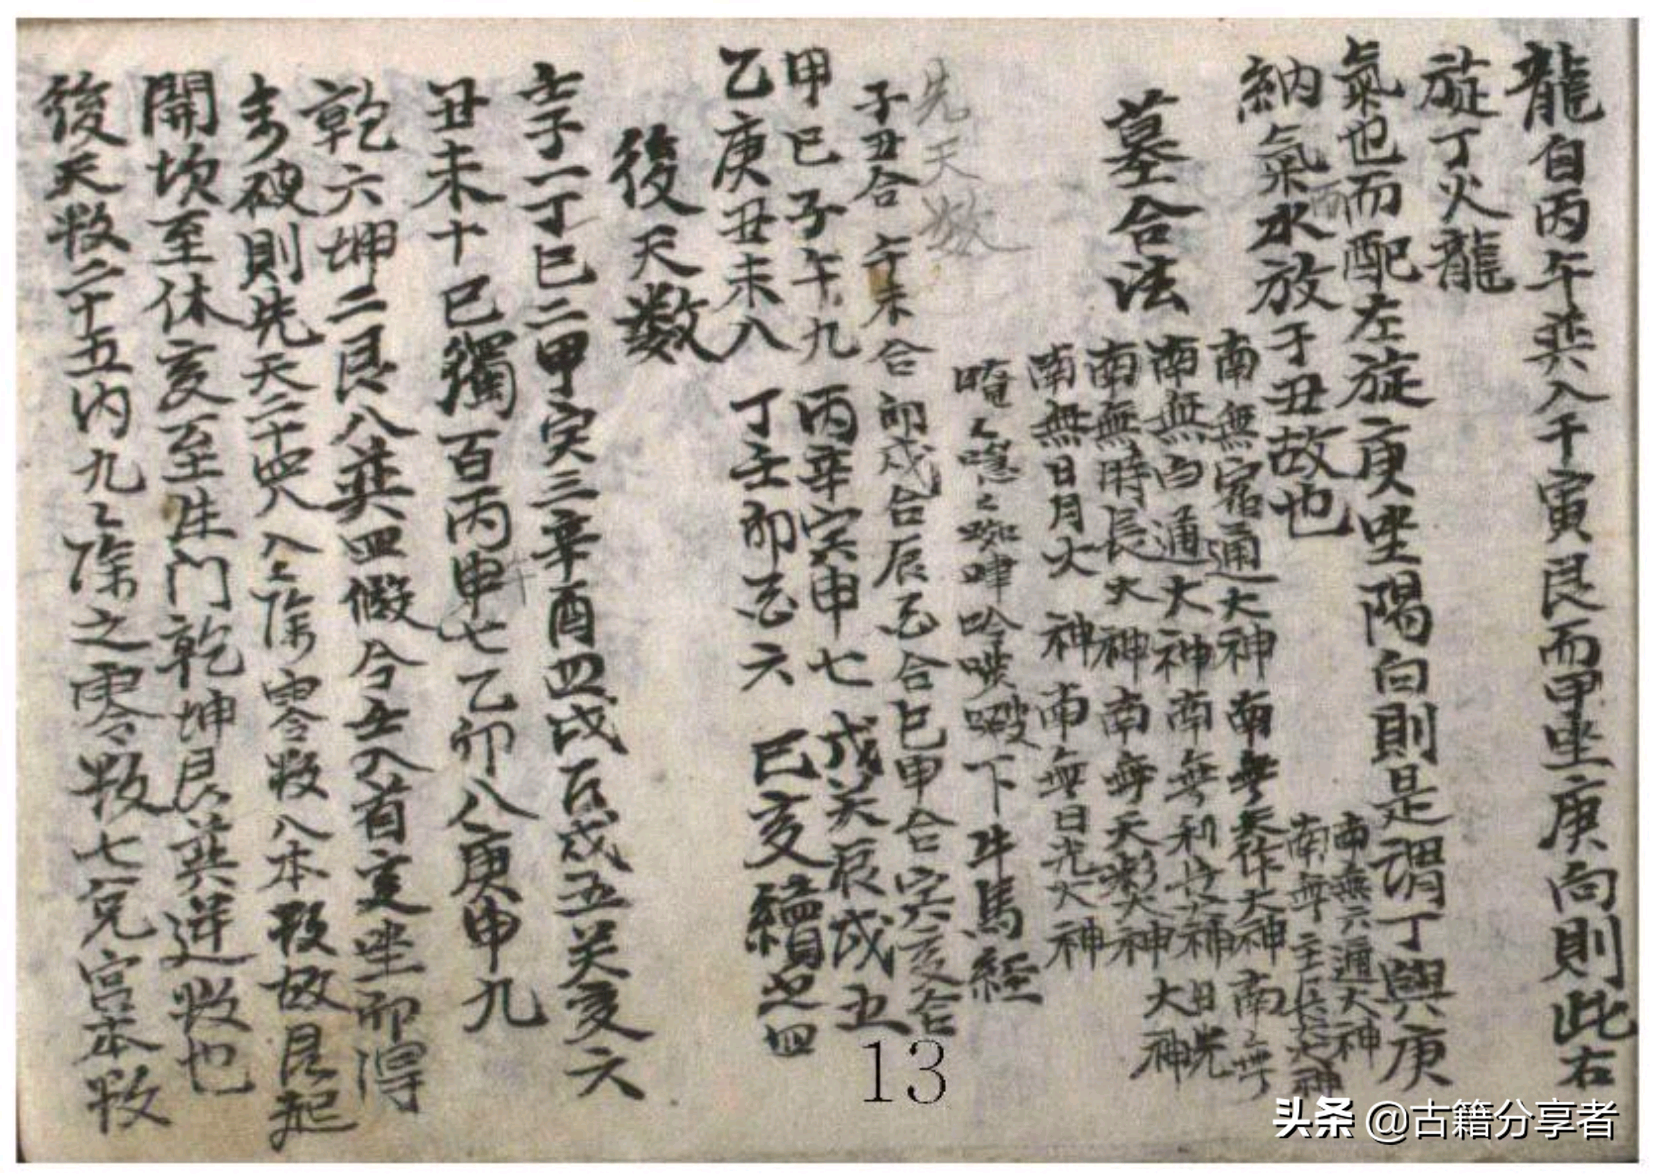 龍自丙午巽入干寅艮而甲坐庚向則此右
旋丁火龍
氣也而配左旋庚坐陽向則是謂丁與庚
納氣水放于丑故也
南無六通大神
南無主長大神
墓合法
南無宿通大神 南無天作大神 南無
南無白通大神 南無利 大神 日光大神
南無時長大神 南無天 大神
南無日月大神 南無日光大神
下牛馬經
先天数
子丑合 午未合 卯戌合 辰酉合 巳申合 寅亥合
甲己子午九 丙辛寅申七 戊癸辰戌五
乙庚丑未八 丁壬卯酉六 巳亥續之四
後天數
壬子一丁巳二甲寅三辛酉四戊辰戌五癸亥六
丑未十己獨百丙申七乙卯八庚申九
乾六坤二艮八巽四假令壬入首亥坐卯得
破則先天二十四 八八除零数八本数故艮起
開坎至休亥至生門乾坤艮巽逆数也
後天数二十五內九九除之零数七兌宮本数
13
头条 @古籍分享者